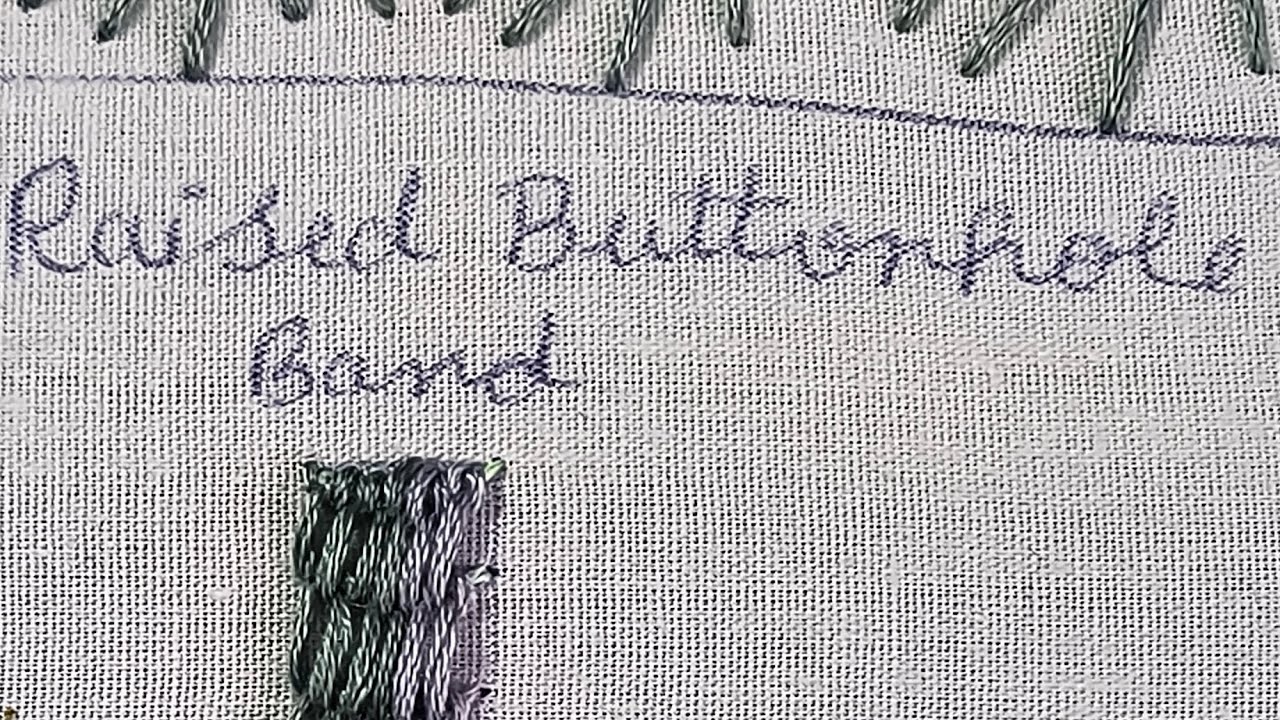 Raised Buttonhole
Band